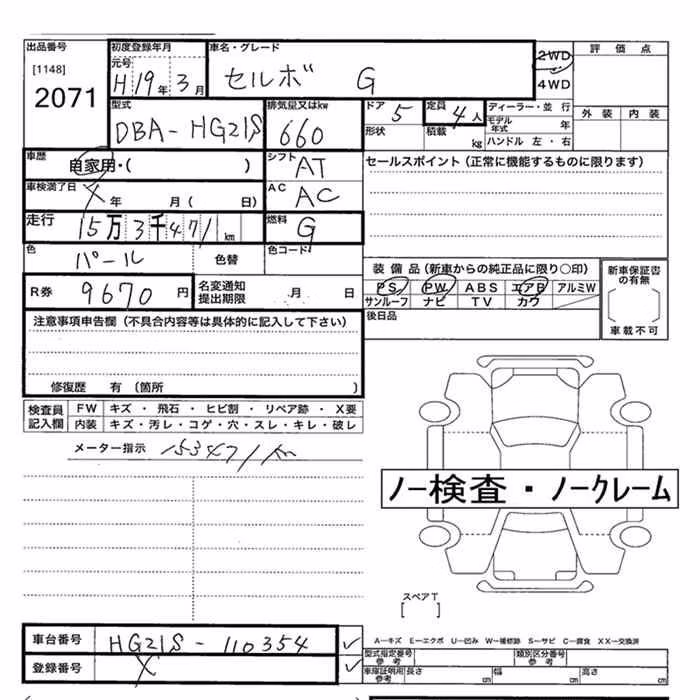 出品番号 初度登録年月 車名・グレード 2WD 評価点
[1148] 元号 H19年3月 セルボ G 4WD
2071 型式 排気量又はkw ドア 5 定員 4人 ディーラー・並行 外装 内装
DBA-HG21S 660 形状 積載 kg モデル年式 年
ハンドル 左・右
車歴 自家用・( ) シフト AT セールスポイント (正常に機能するものに限ります)
車検満了日 X 年 月 ( 日) AC AC
走行 15万3千471km 燃料 G
色 パール 色替 色コード
装備品 (新車からの純正品に限り○印) 新車保証書の有無
R券 9670円 名変通知提出期限 月 日 PS PW ABS エアB アルミW
サンルーフ ナビ TV カワ
後日品 車載不可
注意事項申告欄 (不具合内容等は具体的に記入して下さい)
修復歴 有 (箇所 )
検査員記入欄 FW キズ ・ 飛石 ・ ヒビ割 ・ リペア跡 ・ X要
内装 キズ・汚レ・コゲ・穴・スレ・キレ・破レ
メーター指示 153471km
ノー検査・ノークレーム
スペアT
[ ]
車台番号 HG21S-110354
A-キズ E-エクボ U-凹み W-補修跡 S-サビ C-腐食 XX-交換済
登録番号 X
型式指定番号 参考 類別区分番号 参考
車庫証明用 参考 長さ cm 幅 cm 高さ cm